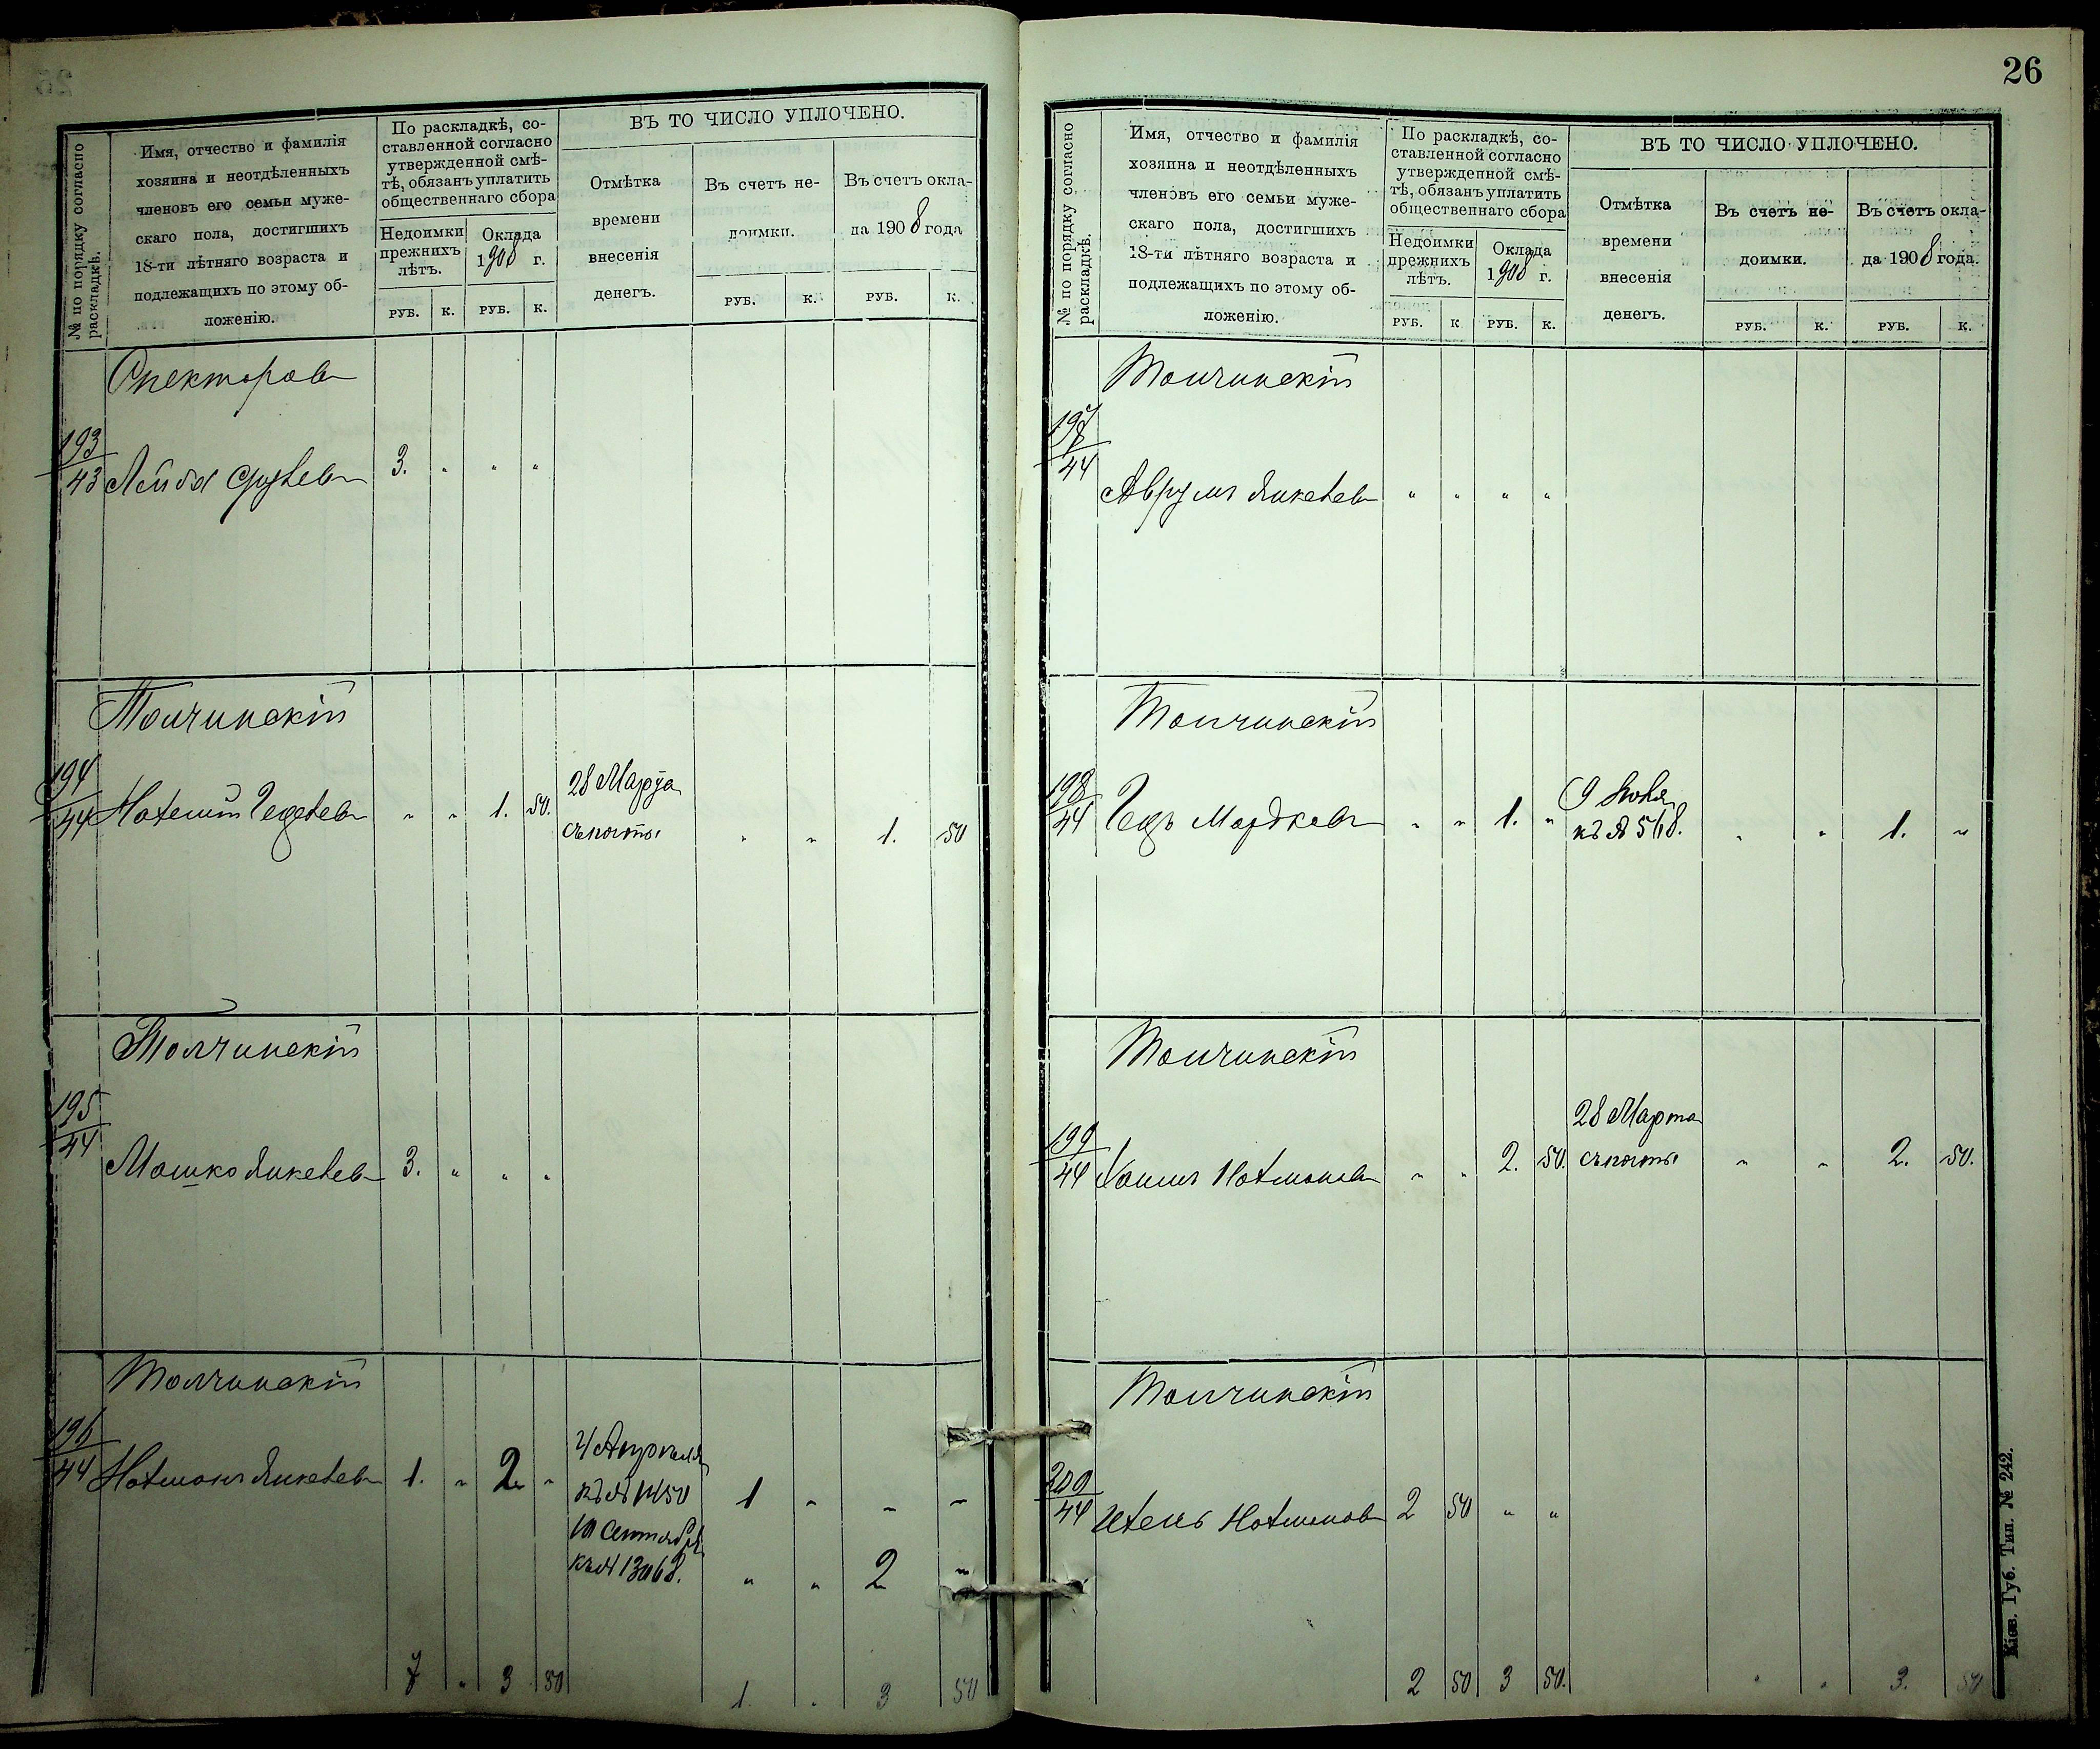 № по порядку согласно раскладкѣ.
Имя, отчество и фамилія
хозяина и неотдѣленныхъ
членовъ его семьи муже-
скаго пола, достигшихъ
18-ти лѣтняго возраста и
подлежащихъ по этому об-
ложенію.
По раскладкѣ, со-
ставленной согласно
утвержденной смѣ-
тѣ, обязанъ уплатить
общественнаго сбора
Недоимки
прежнихъ
лѣтъ.
Оклада
1908 г.
РУБ. К. РУБ. К.
ВЪ ТО ЧИСЛО УПЛОЧЕНО.
Отмѣтка
времени
внесенія
денегъ.
Въ счетъ не-
доимки.
Въ счетъ окла-
да 1908 года
РУБ. К. РУБ. К.
Спекторовъ
193/43 Лейба 3. " " "
Толчинскій
194/44 " " 1. 50. 28 Марта
" " 1. 50
Толчинскій
195/44
Мошко Янкелевъ 3. " " "
Толчинскій
196/44 Нотманъ Янкелевъ 1. " 2 " 4 Апрѣля
1 " " "
10 Сентября
" " 2 "
7 " 3 50 1. " 3 50
26
№ по порядку согласно раскладкѣ.
Имя, отчество и фамилія
хозяина и неотдѣленныхъ
членовъ его семьи муже-
скаго пола, достигшихъ
18-ти лѣтняго возраста и
подлежащихъ по этому об-
ложенію.
По раскладкѣ, со-
ставленной согласно
утвержденной смѣ-
тѣ, обязанъ уплатить
общественнаго сбора
Недоимки
прежнихъ
лѣтъ.
Оклада
1908 г.
РУБ. К РУБ. К.
ВЪ ТО ЧИСЛО УПЛОЧЕНО.
Отмѣтка
времени
внесенія
денегъ.
Въ счетъ не-
доимки.
Въ счетъ окла-
да 1908 года.
РУБ. К. РУБ. К.
Толчинскій
197/44
Аврумъ Янкелевъ " " " "
Толчинскій
198/44 Мордковъ " " 1. "
" " 1. "
Толчинскій
199/44 Нотмановъ " " 2. 50. 28 Марта
" " 2. 50.
Толчинскій
200/44 Нотмановъ 2 50 " "
2 50 3 50. " " 3. 50
Кіев. Губ. Тип. № 242.